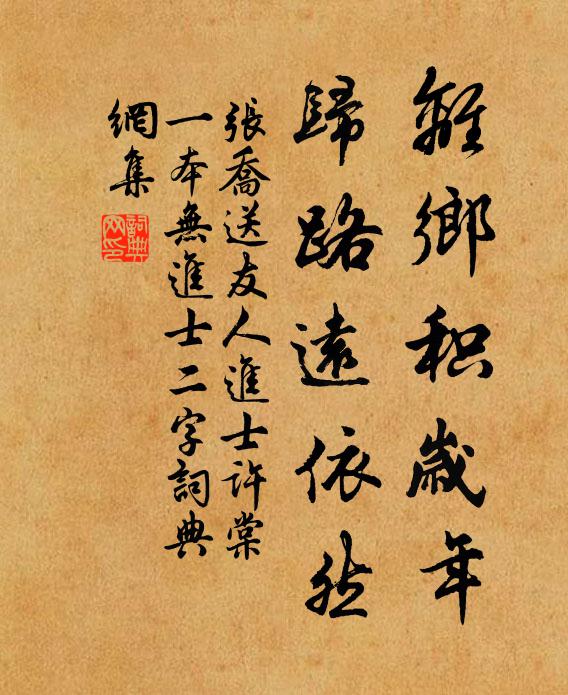 離鄉积歲年
歸路遠依然
張喬送友人進士許棠
一本無進士二字詞典
網集
詞典
网印